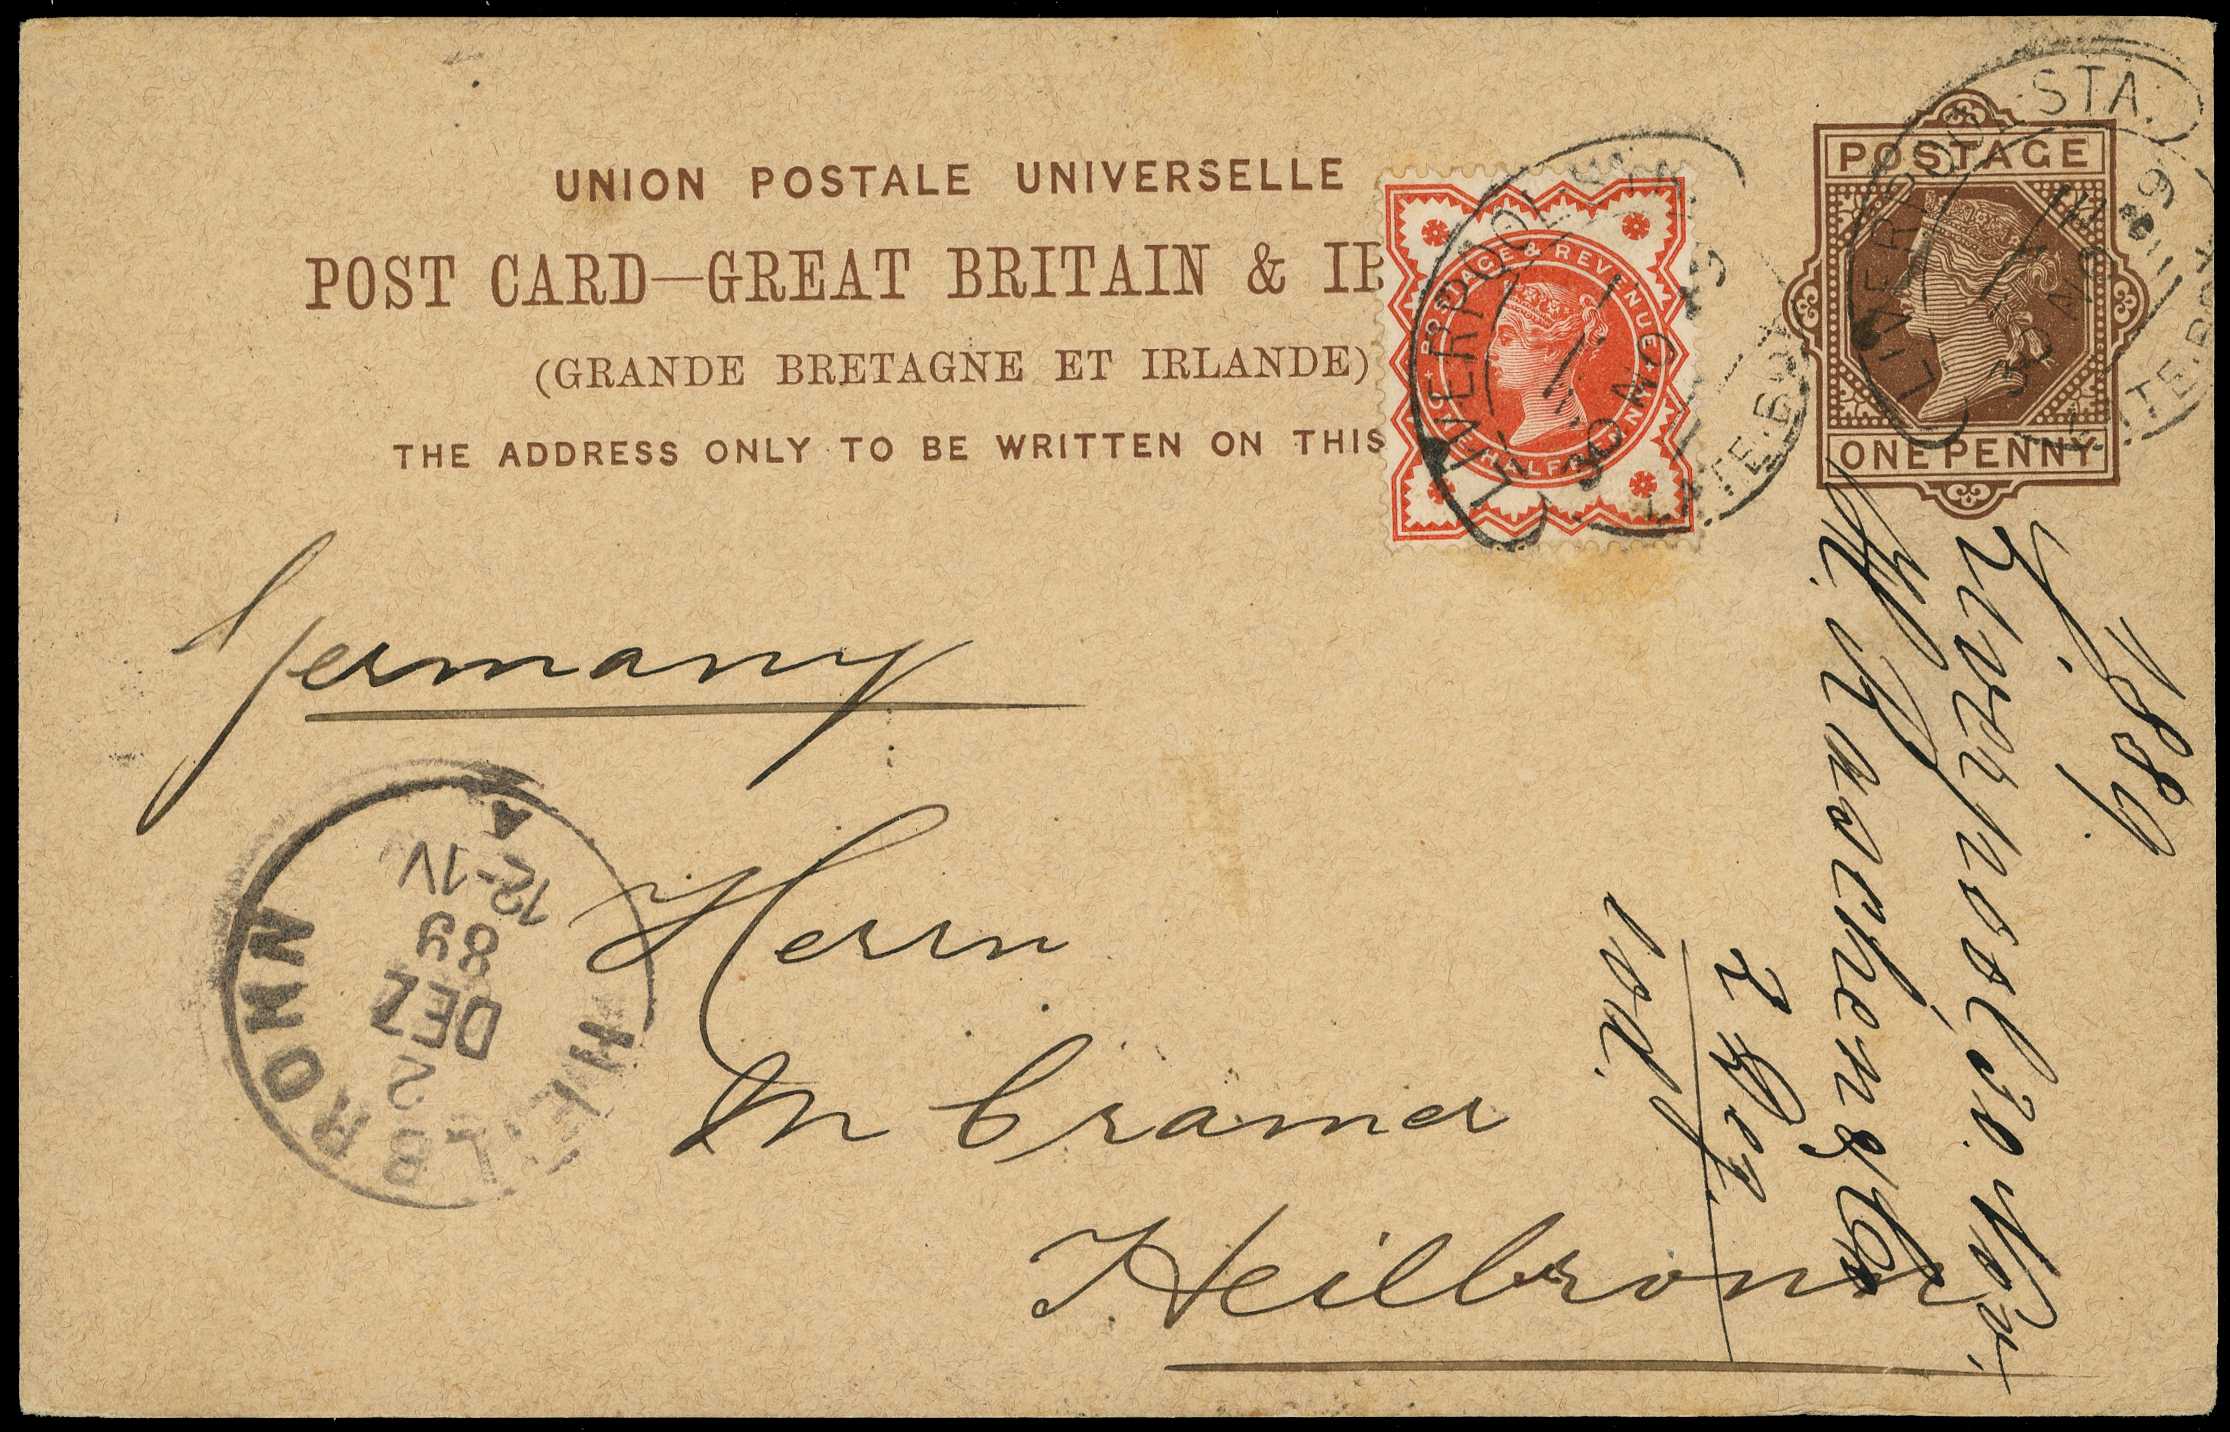 UNION POSTALE UNIVERSELLE
POST CARD—GREAT BRITAIN & IR
(GRANDE BRETAGNE ET IRLANDE)
THE ADDRESS ONLY TO BE WRITTEN ON THIS
POSTAGE & REVENUE
ONE HALFPENNY
LIVERPOOL
30 NO
89
LATE BOX
POSTAGE
ONE PENNY
LIVERPOOL STA.
30 NO
89
LATE BOX
Germany
Herrn
M Cramer
Heilbronn
HEILBRONN
2
DEZ
89
12-1V
A
1889
Liverpool 30. Nov.
2 Dez